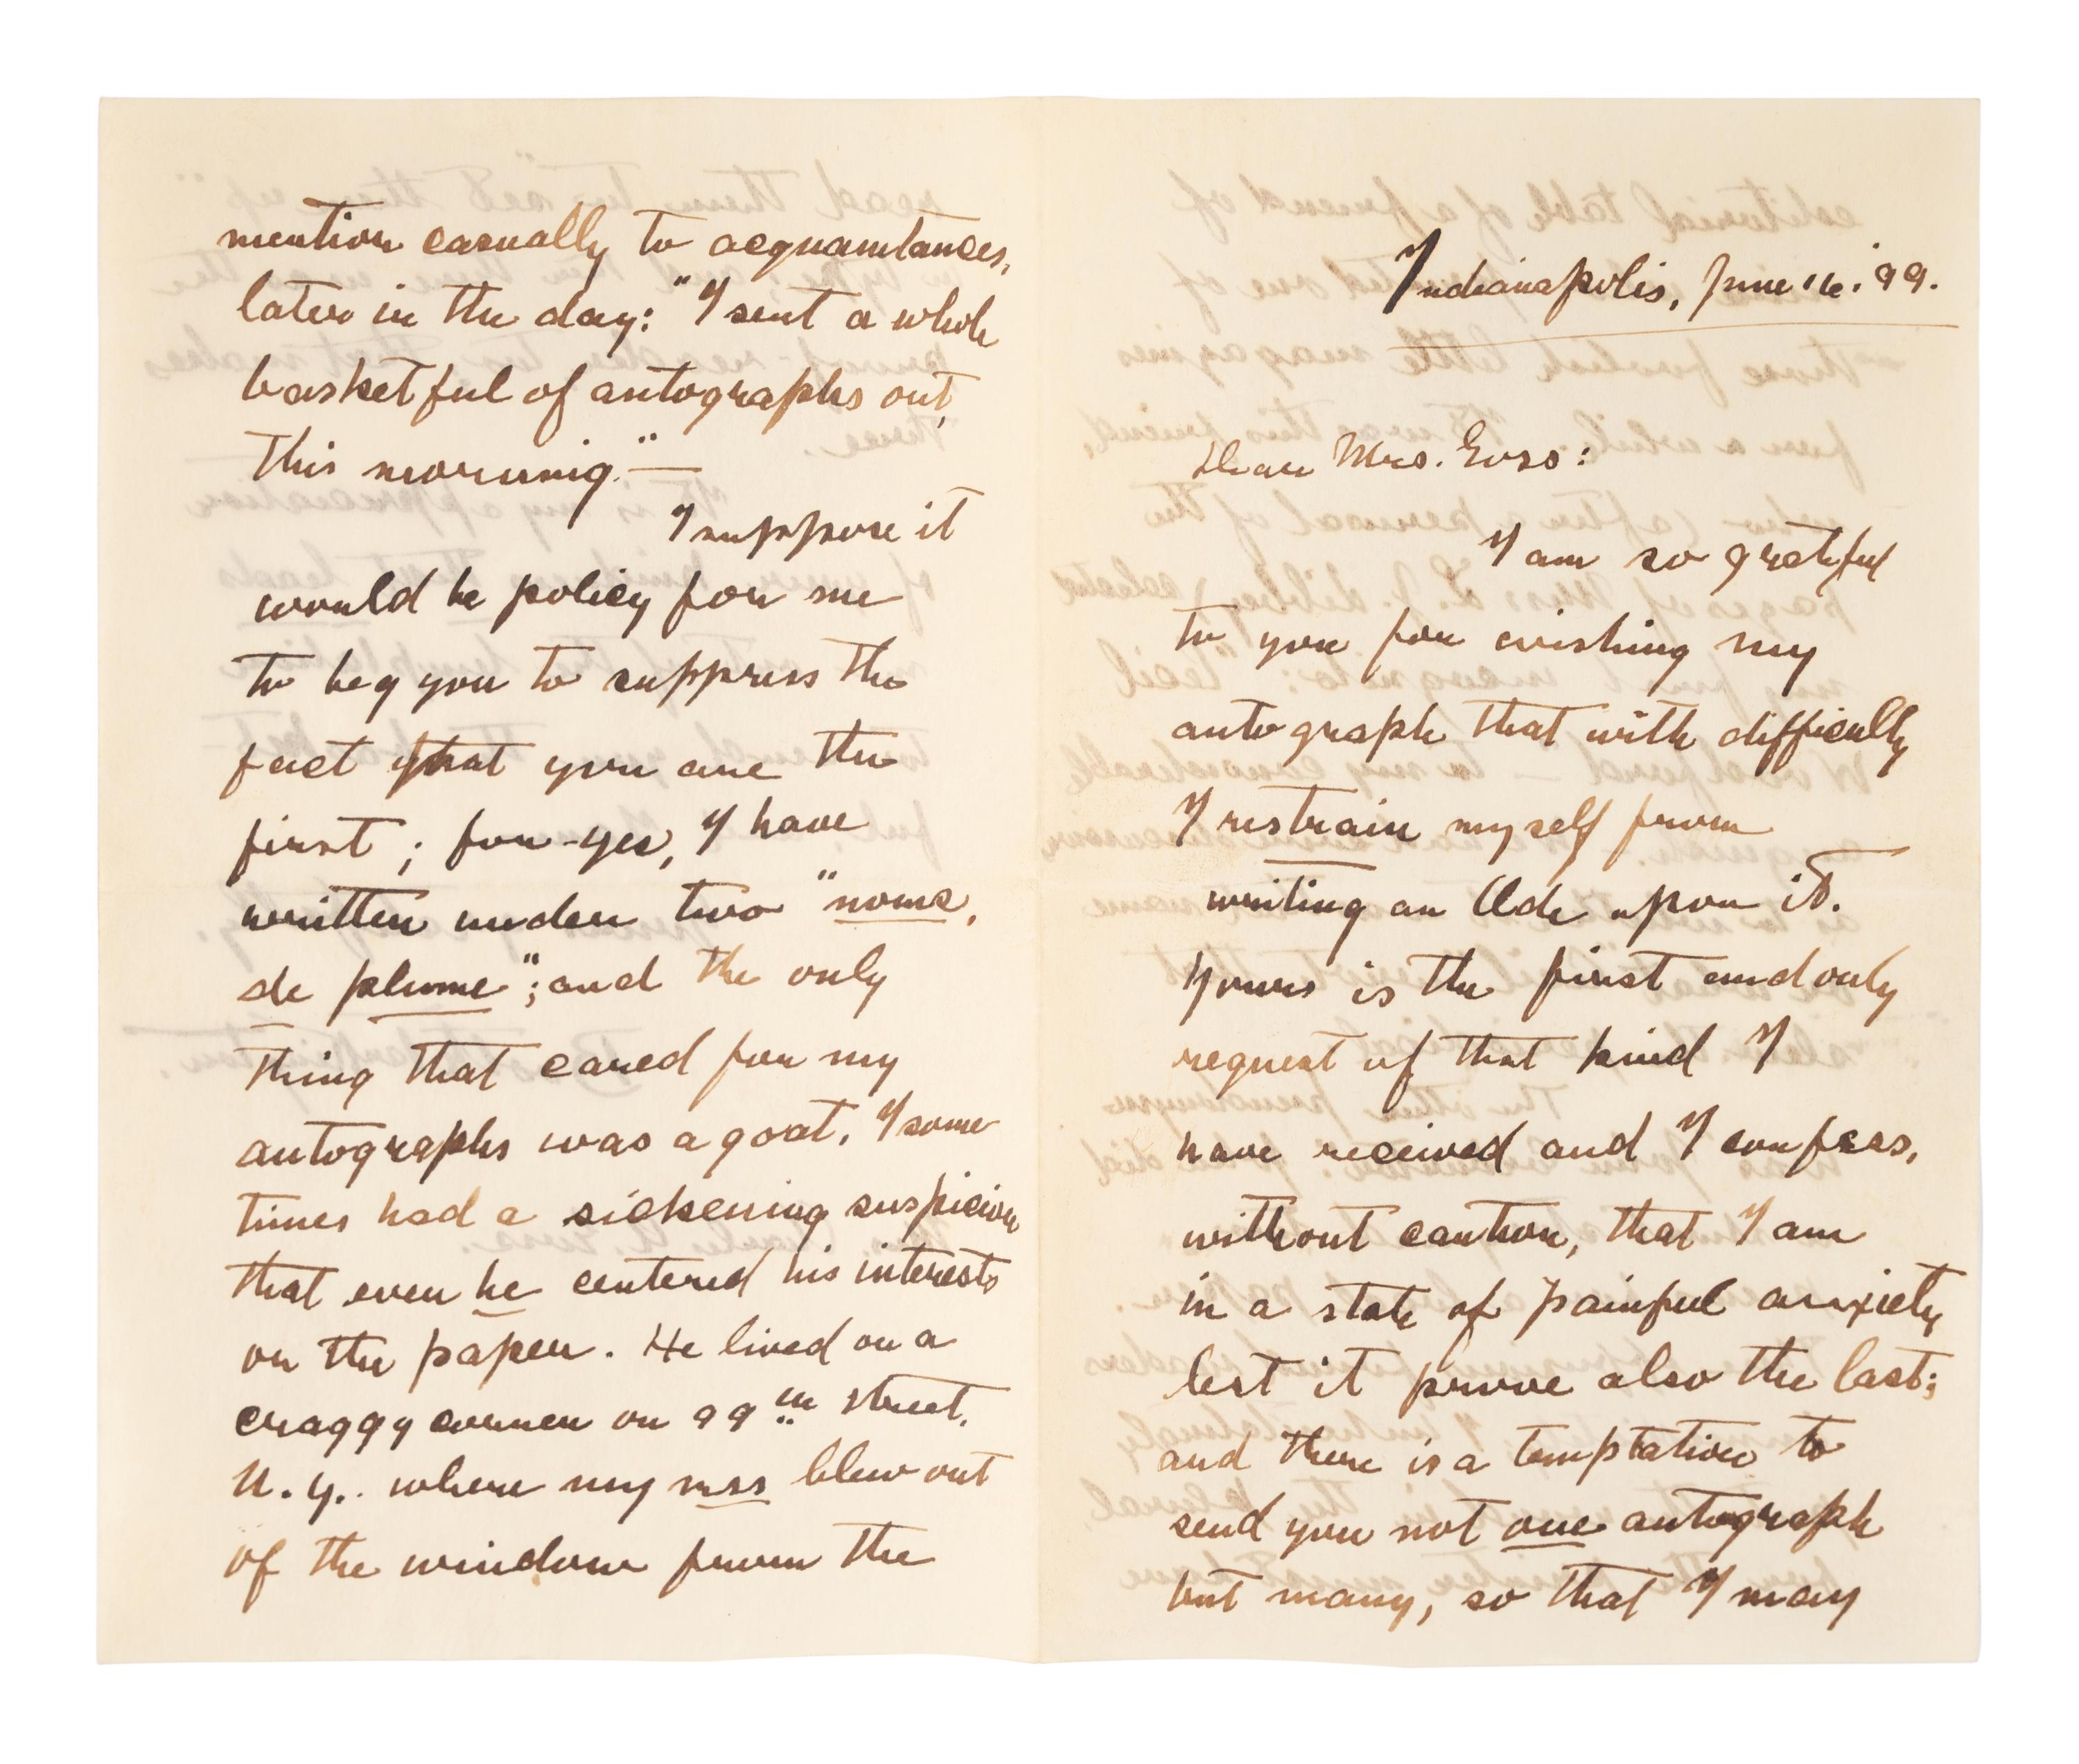 Indianapolis, June 16. '99.
Dear Mrs. Goss:
I am so grateful
to you for wishing my
autograph that with difficulty
I restrain myself from
writing an Ode upon it.
Yours is the first and only
request of that kind I
have received and I confess,
without caution, that I am
in a state of painful anxiety
lest it prove also the last;
and there is a temptation to
send you not one autograph
but many, so that I may
mention casually to acquaintances,
later in the day: "I sent a whole
basketful of autographs out,
this morning." —
I suppose it
would be policy for me
to beg you to suppress the
fact that you are the
first; for - yes, I have
written under two "noms
de plume"; and the only
thing that cared for my
autographs was a goat. I some
times had a sickening suspicion
that even he centered his interests
on the paper. He lived on a
craggy corner on 99th street,
N. Y.. where my mss blew out
of the window from the